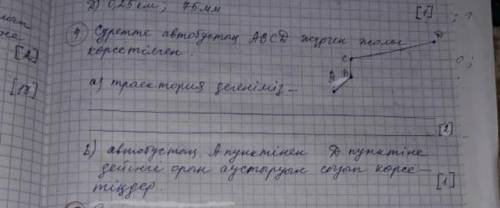 2) 0,25 км ; 75 мм
[1]
4 Суретте автобустың ABCD жүрген жолы
көрсетілген.
D
C
B
A
[2]
а) траектория дегеніміз –
[2]
b) автобустың А пунктінен D пунктіне
дейінгі орын ауыстыруын сызып көрсе-
тіңдер
[1]